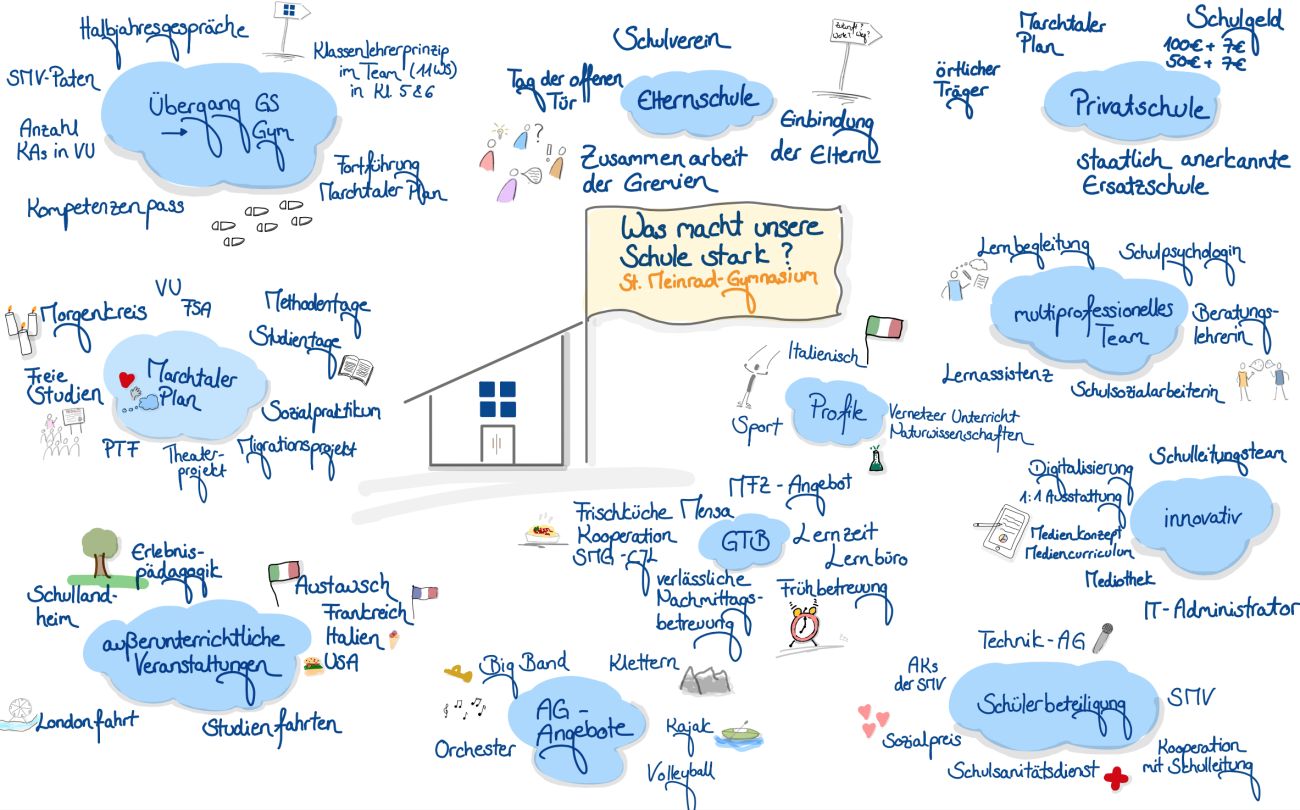 Halbjahresgespräche
SMV-Paten
Klassenlehrerprinzip
im Team (11WS)
in Kl. 5&6
Übergang GS
→ Gym
Anzahl
KAs in VU
Fortführung
Marchtaler Plan
Kompetenzenpass
Schulverein
Tag der offenen
Tür
Elternschule
Zukunft?
Wohin? Weg?
Einbindung
der Eltern
Zusammenarbeit
der Gremien
Marchtaler
Plan
Schulgeld
100€ + 7€
50€ + 7€
örtlicher
Träger
Privatschule
staatlich anerkannte
Ersatzschule
Was macht unsere
Schule stark?
St. Meinrad-Gymnasium
Morgenkreis
VU
FSA
Methodentage
Studientage
Marchtaler
Plan
Freie
Studien
Sozialpraktikum
PTF
Theater-
projekt
Migrationsprojekt
Lernbegleitung
Schulpsychologin
multiprofessionelles
Team
Beratungs-
lehrerin
Lernassistenz
Schulsozialarbeiterin
Italienisch
Profile
Sport
Vernetzer Unterricht
Naturwissenschaften
Schulleitungsteam
Digitalisierung
1:1 Ausstattung
innovativ
Medienkonzept
Mediencurriculum
Mediothek
IT-Administrator
MFZ - Angebot
Frischküche Mensa
Kooperation
SMG-GZL
GTB
Lernzeit
Lernbüro
verlässliche
Nachmittags-
betreuung
Frühbetreuung
Erlebnis-
pädagogik
Schulland-
heim
Austausch
Frankreich
Italien
USA
außerunterrichtliche
Veranstaltungen
Londonfahrt
Studienfahrten
Big Band
Klettern
AG -
Angebote
Orchester
Kajak
Volleyball
Technik-AG
AKs
der SMV
Schülerbeteiligung
SMV
Sozialpreis
Schulsanitätsdienst
Kooperation
mit Schulleitung